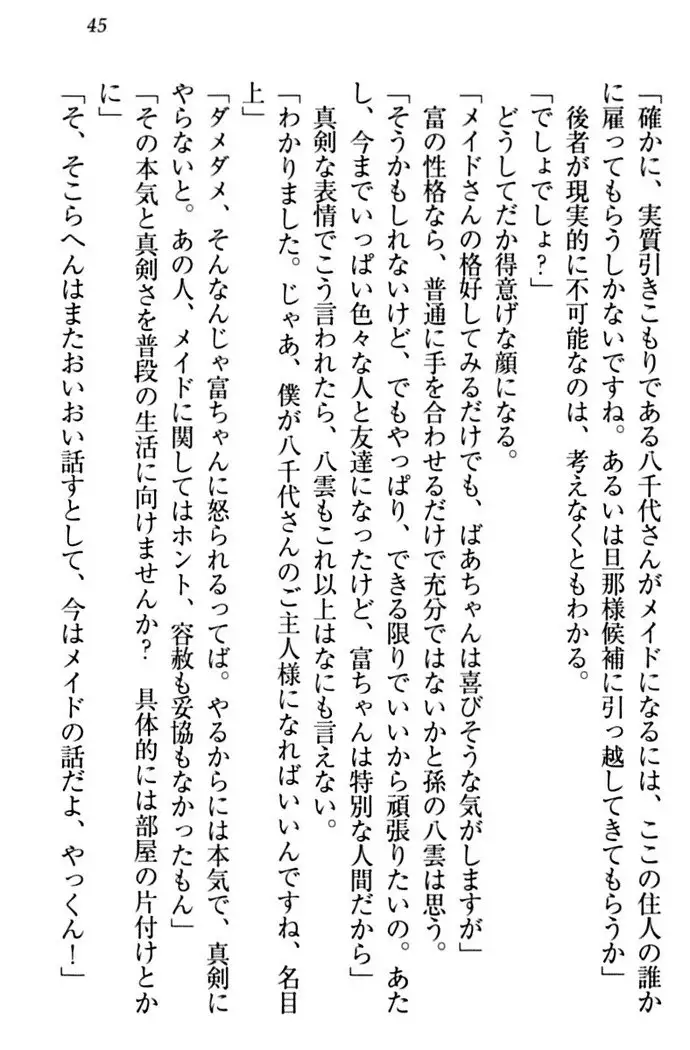 45
「確かに、実質引きこもりである八千代さんがメイドになるには、ここの住人の誰か
に雇ってもらうしかないですね。あるいは旦那様候補に引っ越してきてもらうか」
後者が現実的に不可能なのは、考えなくともわかる。
「でしょでしょ?」
どうしてだか得意げな顔になる。
「メイドさんの格好してみるだけでも、ばあちゃんは喜びそうな気がしますが」
富の性格なら、普通に手を合わせるだけで充分ではないかと孫の八雲は思う。
「そうかもしれないけど、でもやっぱり、できる限りでいいから頑張りたいの。あた
し、今までいっぱい色々な人と友達になったけど、富ちゃんは特別な人間だから」
真剣な表情でこう言われたら、八雲もこれ以上はなにも言えない。
「わかりました。じゃあ、僕が八千代さんのご主人様になればいいんですね、名目
上」
「ダメダメ、そんなんじゃ富ちゃんに怒られるってば。やるからには本気で、真剣に
やらないと。あの人、メイドに関してはホント、容赦も妥協もなかったもん」
「その本気と真剣さを普段の生活に向けませんか? 具体的には部屋の片付けとか
に」
「そ、そこらへんはまたおいおい話すとして、今はメイドの話だよ、やっくん!」